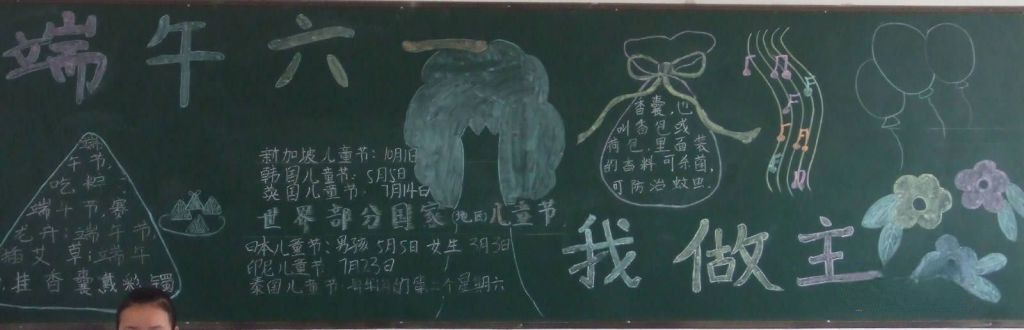 端午六一
端午
节，
吃粽
端午节，赛
龙舟；端午节，
插艾草；端午
挂香囊戴彩镯
新加坡儿童节：10月1日
韩国儿童节：5月5日
英国儿童节：7月14日
世界部分国家地区儿童节
日本儿童节：男孩5月5日 女生3月3日
印尼儿童节 7月23日
泰国儿童节 每年 的第二个星期六
香囊，也
叫香包或
荷包，里面装
的香料可杀菌，
可防治蚊虫.
我做主